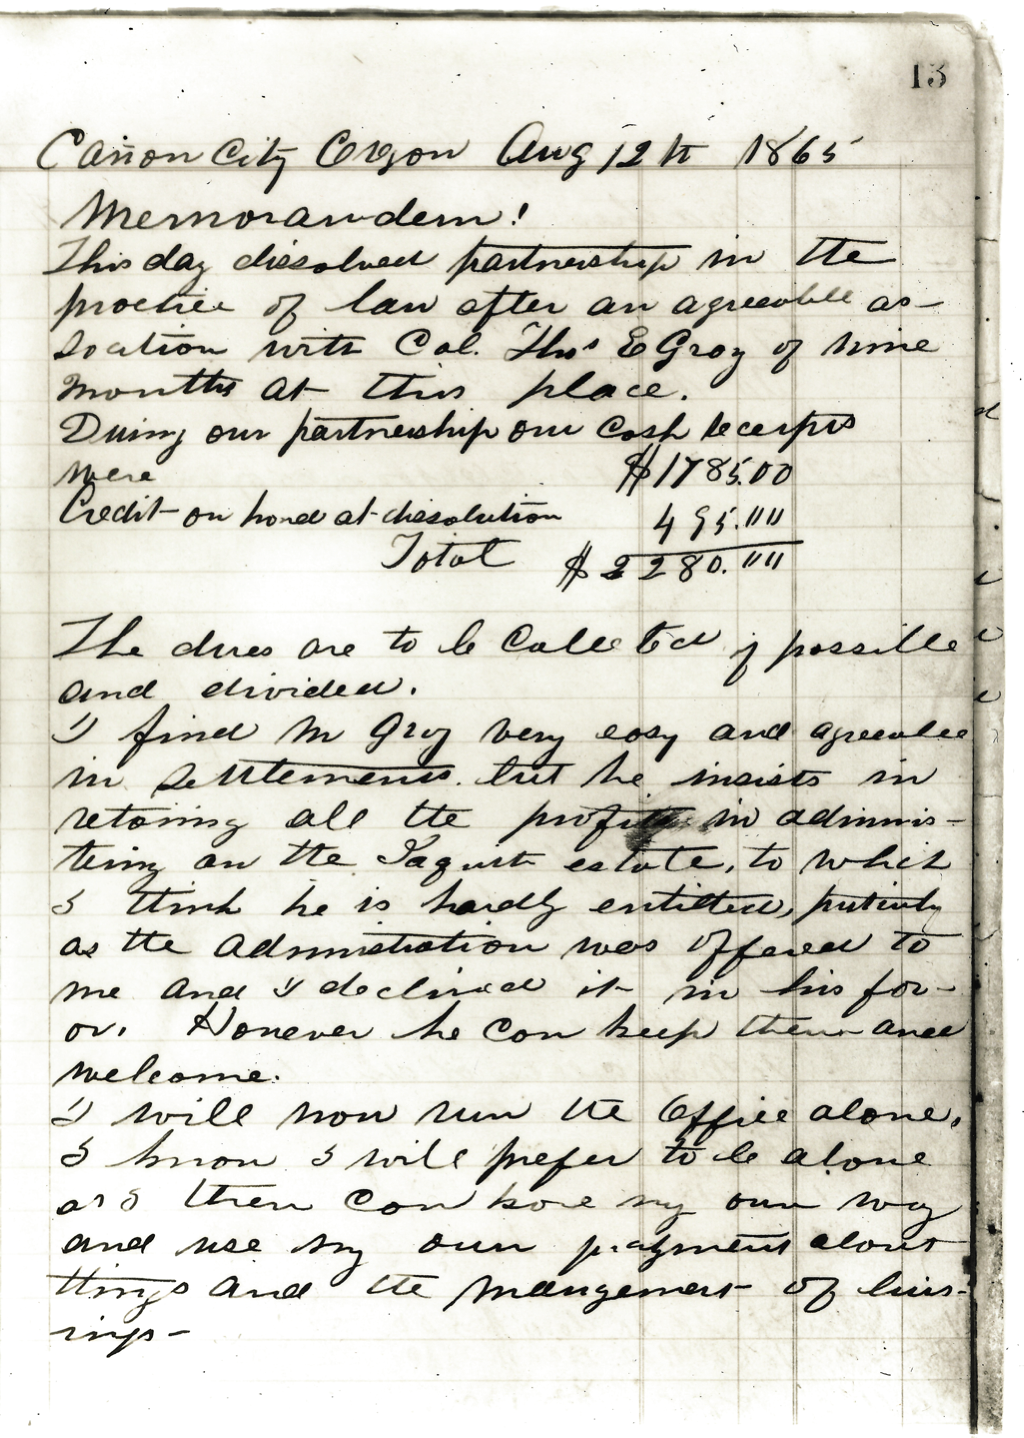 13
Cañon City Oregon Aug 12th 1865
Memorandem!
This day dissolved partnership in the
practice of law after an agreeable as-
sociation with Col. Thos E Gray of nine
months at this place.
During our partnership our cash receipts
were $1785.00
Credit on hand at dissolution 495.""
Total $2280.""
The dues are to be collected if possible
and divided.
I find Mr Gray very easy and agreeable
in settlements. but he insists in
retaining all the profits in adminis-
tering on the estate, to which
I think he is hardly entitled,
as the administration was offered to
me and I declined it in his fav-
or. However he can keep them and
welcome.
I will now run the Office alone,
I know I will prefer to be alone
as I then can have my own way
and use my own judgment about
things and the management of